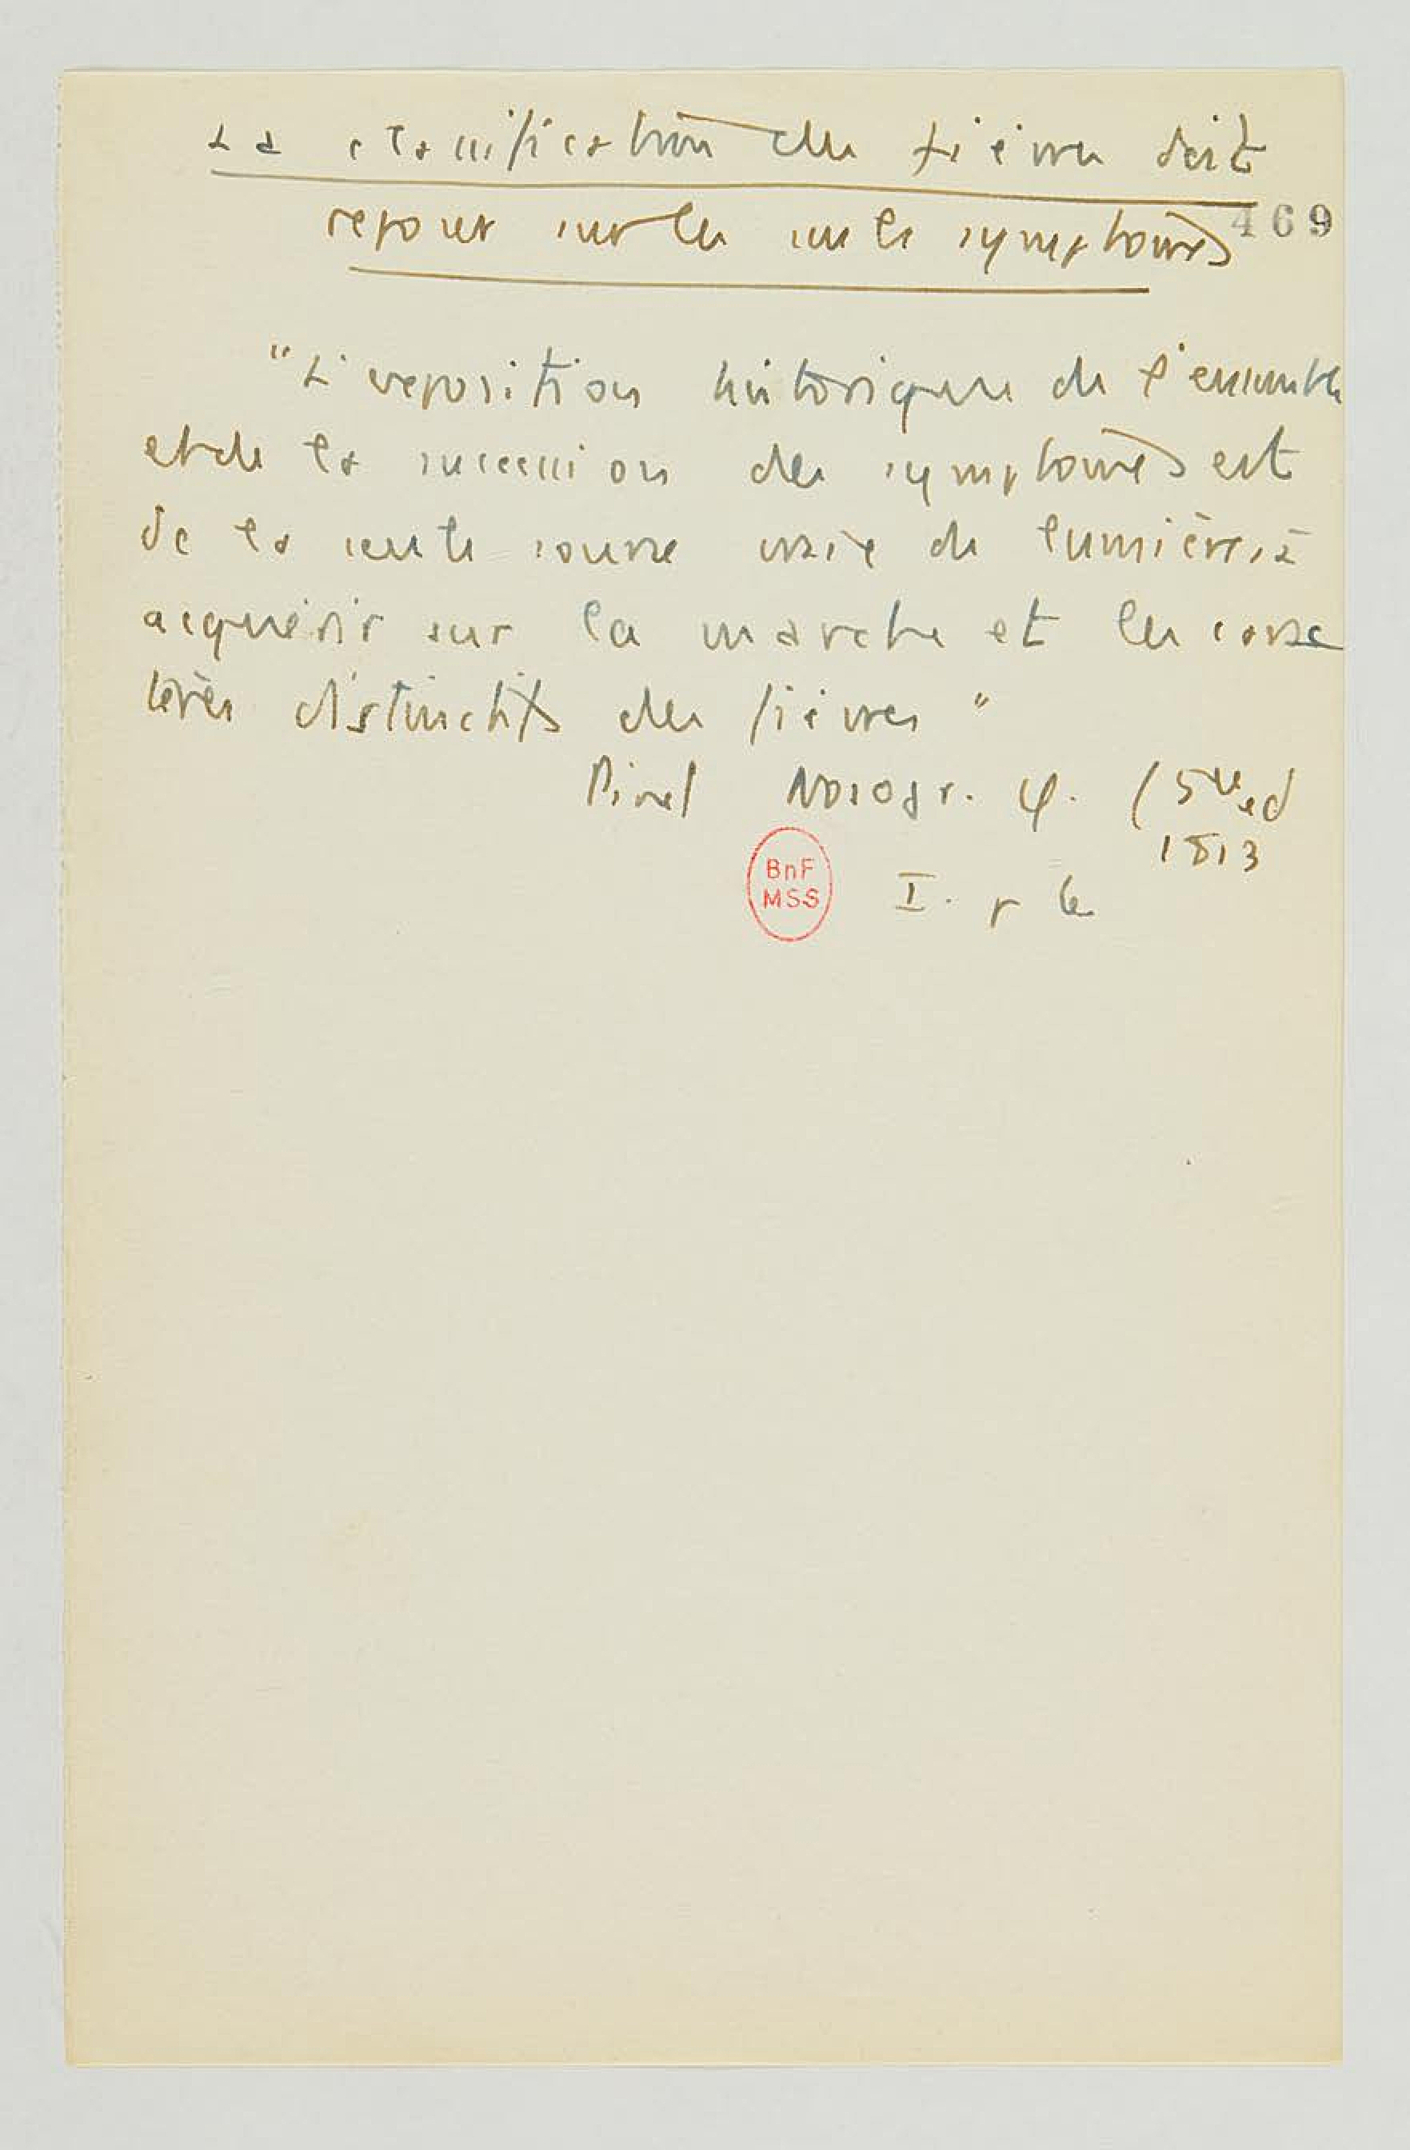 La classification des fièvres doit
reposer sur les seuls symptômes
469
"L'exposition historique de l'ensemble
et de la succession des symptômes est
de la seule source vraie de lumières à
acquérir sur la marche et les carac
tères distinctifs des fièvres"
Pinel Nosogr. φ. (5e ed
1813
BnF
MSS
I. p